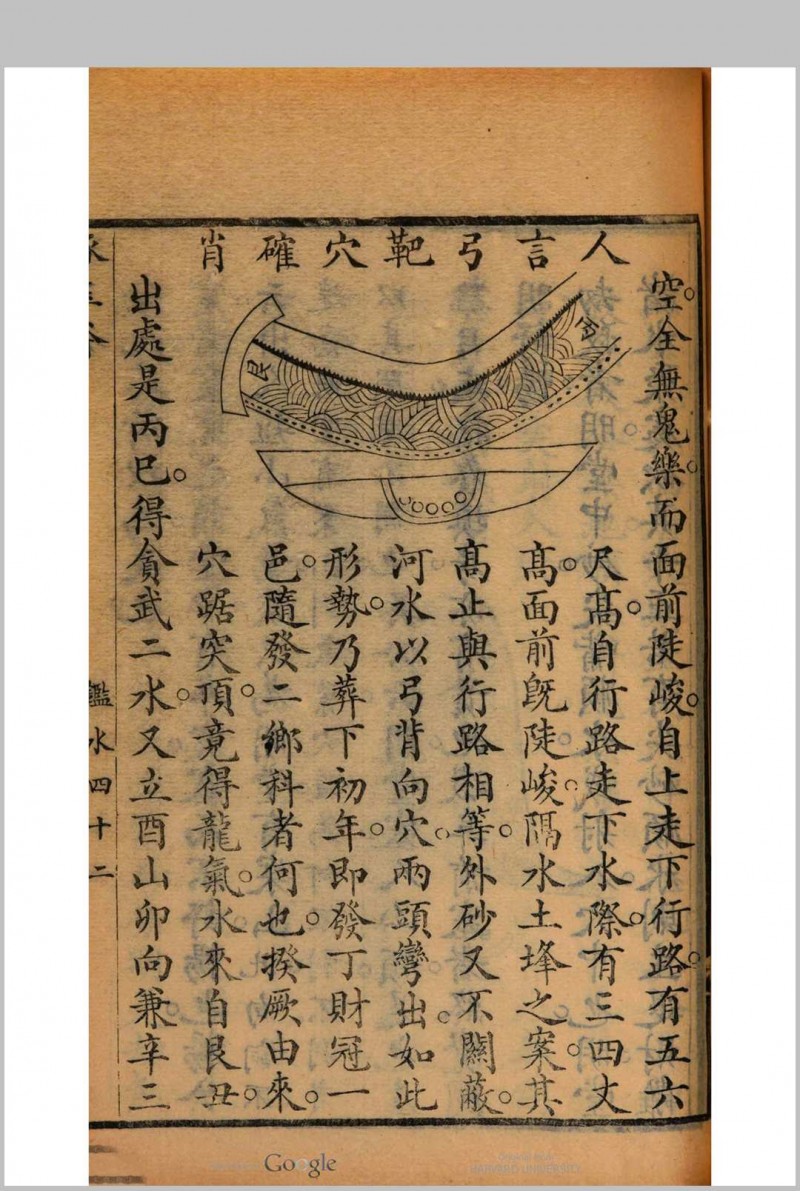 空全無鬼樂而面前陡峻自上走下行路有五六
尺高自行路走下水際有三四丈
高面前旣陡峻隔水土垾之案其
高止與行路相等外砂又不關蔽
河水以弓背向穴兩頭彎出如此
形勢乃葬下初年卽發丁財冠一
邑隨發二鄉科者何也揆厥由來
穴踞突頂竟得龍氣水來自艮丑
出處是丙巳得貪武二水又立酉山卯向兼辛三
人言弓靶穴確肖
艮
鑑水四十二
Google